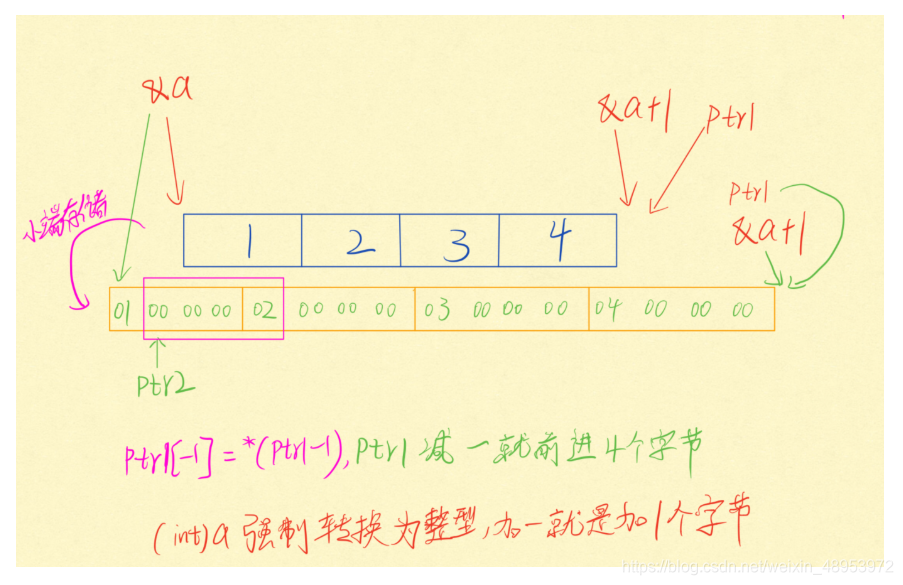 &a
&a+1
ptr1
ptr1
&a+1
小端存储
1 2 3 4
01 00 00 00 02 00 00 00 03 00 00 00 04 00 00 00
ptr2
ptr1[-1]=*(ptr1-1),ptr1减一就前进4个字节
(int)a强制转换为整型,加一就是加1个字节
https://blog.csdn.net/weixin_48953972